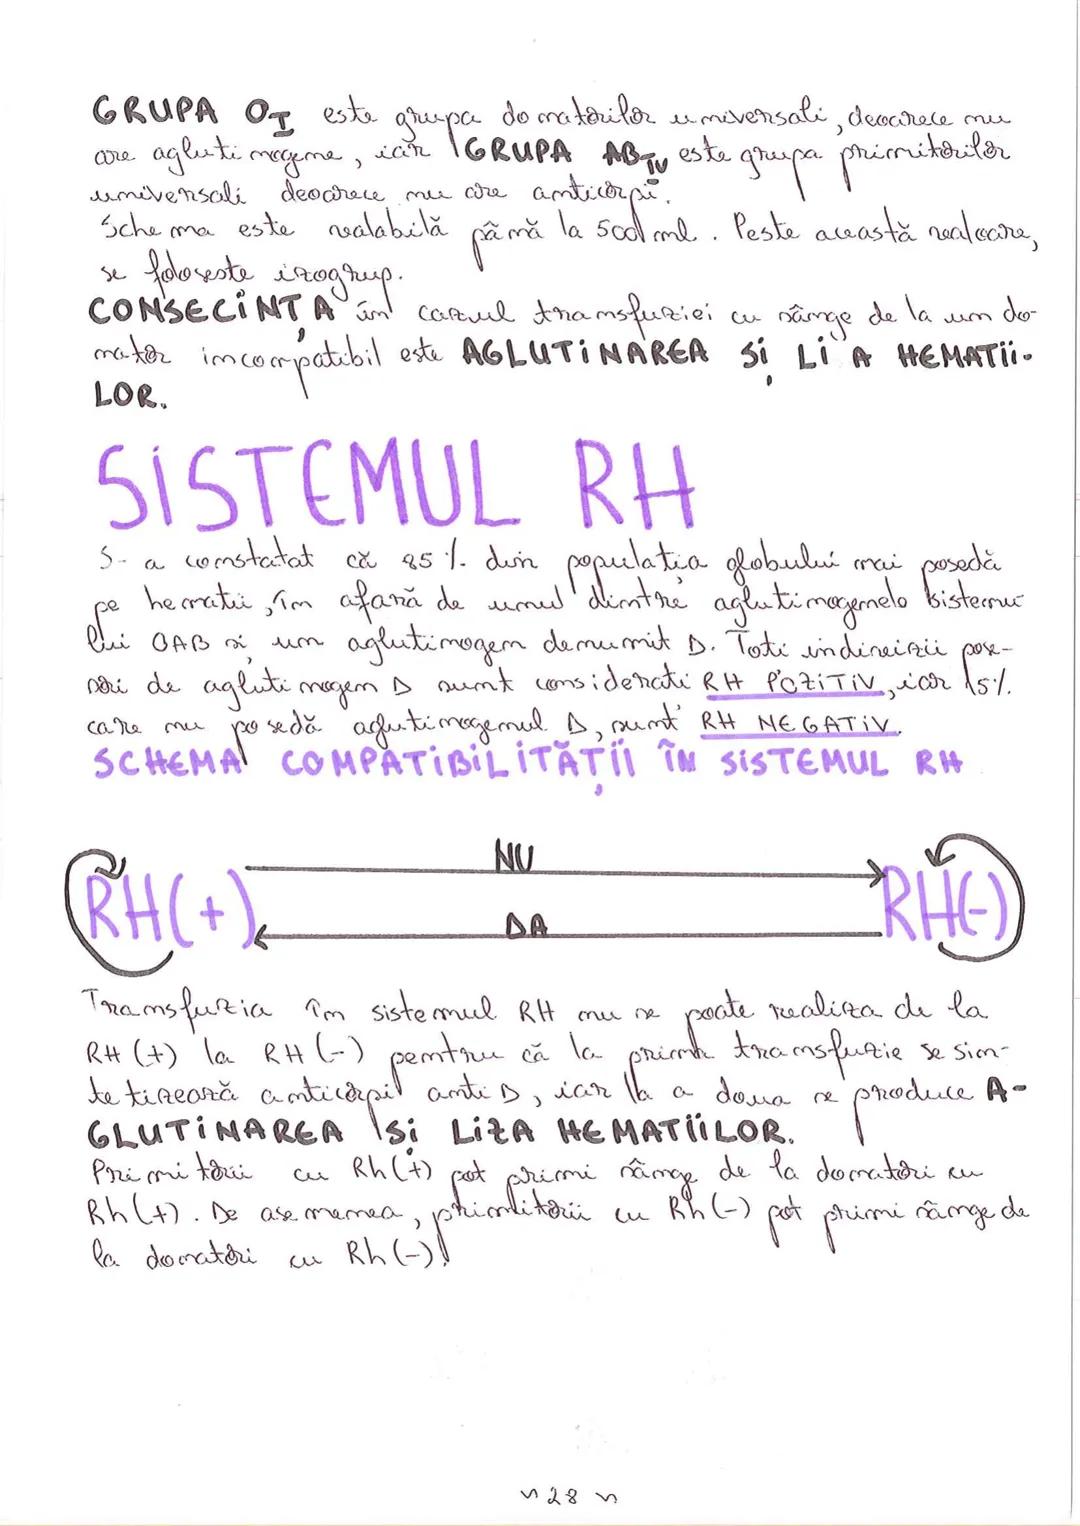 GRUPA O I este grupa donatorilor universali, deoarece nu
are aglutinogene, iar GRUPA AB IV este grupa primitorilor
universali deoarece nu are anticorpi.
Schema este valabilă până la 500 ml. Peste această valoare,
se folosește izogrup.
CONSECINȚA în cazul transfuziei cu sânge de la un do-
nator incompatibil este AGLUTINAREA și LI A HEMATII-
LOR.
SISTEMUL RH
S-a constatat că 85% din populația globului mai posedă
pe hematii, în afară de unul dintre aglutinogenele sistemu
lui OAB și un aglutinogen denumit D. Toti indivizii pose-
sori de aglutinogen D sunt considerati RH POZITIV, iar 15%
care nu posedă aglutinogenul D, sunt RH NEGATIV.
SCHEMA COMPATIBILITĂȚII ÎN SISTEMUL RH
NU
RH(+) RH(-)
DA
Transfuzia în sistemul RH nu se poate realiza de la
RH (+) la RH (-) pentru că la prima transfuzie se sin-
tetizează anticorpii anti D, iar la a doua se produce A-
GLUTINAREA și LIZA HEMATIILOR.
Primitorii cu Rh(+) pot primi sânge de la donatori cu
Rh(+). De asemenea, primitorii cu Rh(-) pot primi sânge de
la donatori cu Rh(-).
~ 28 ~